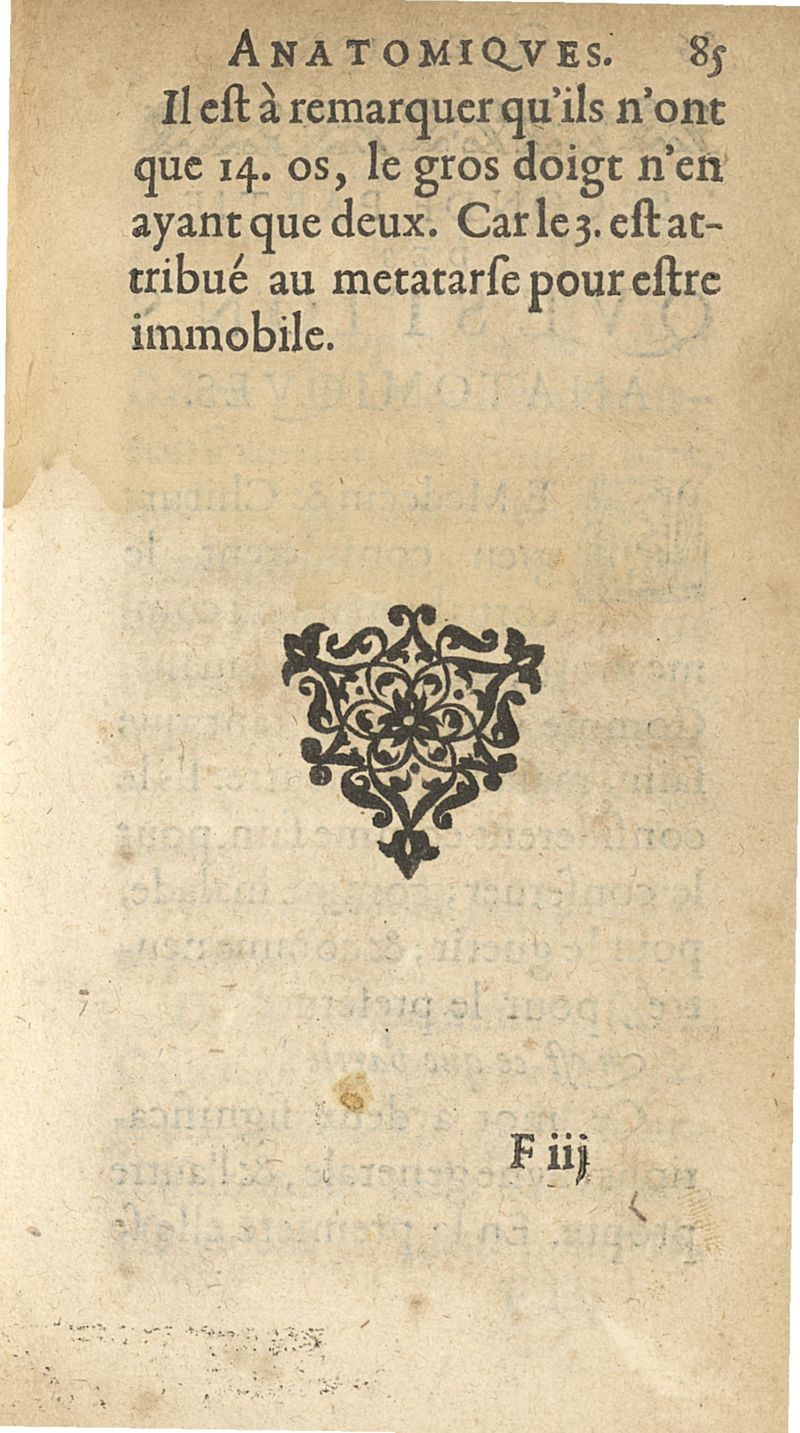 ANATOMIQVES. 85
Il eſt à remarquer qu'ils n'ont
que 14. os, le gros doigt n'en
ayant que deux. Car le 3. eſt at-
tribué au metatarſe pour eſtre
immobile.
F iij